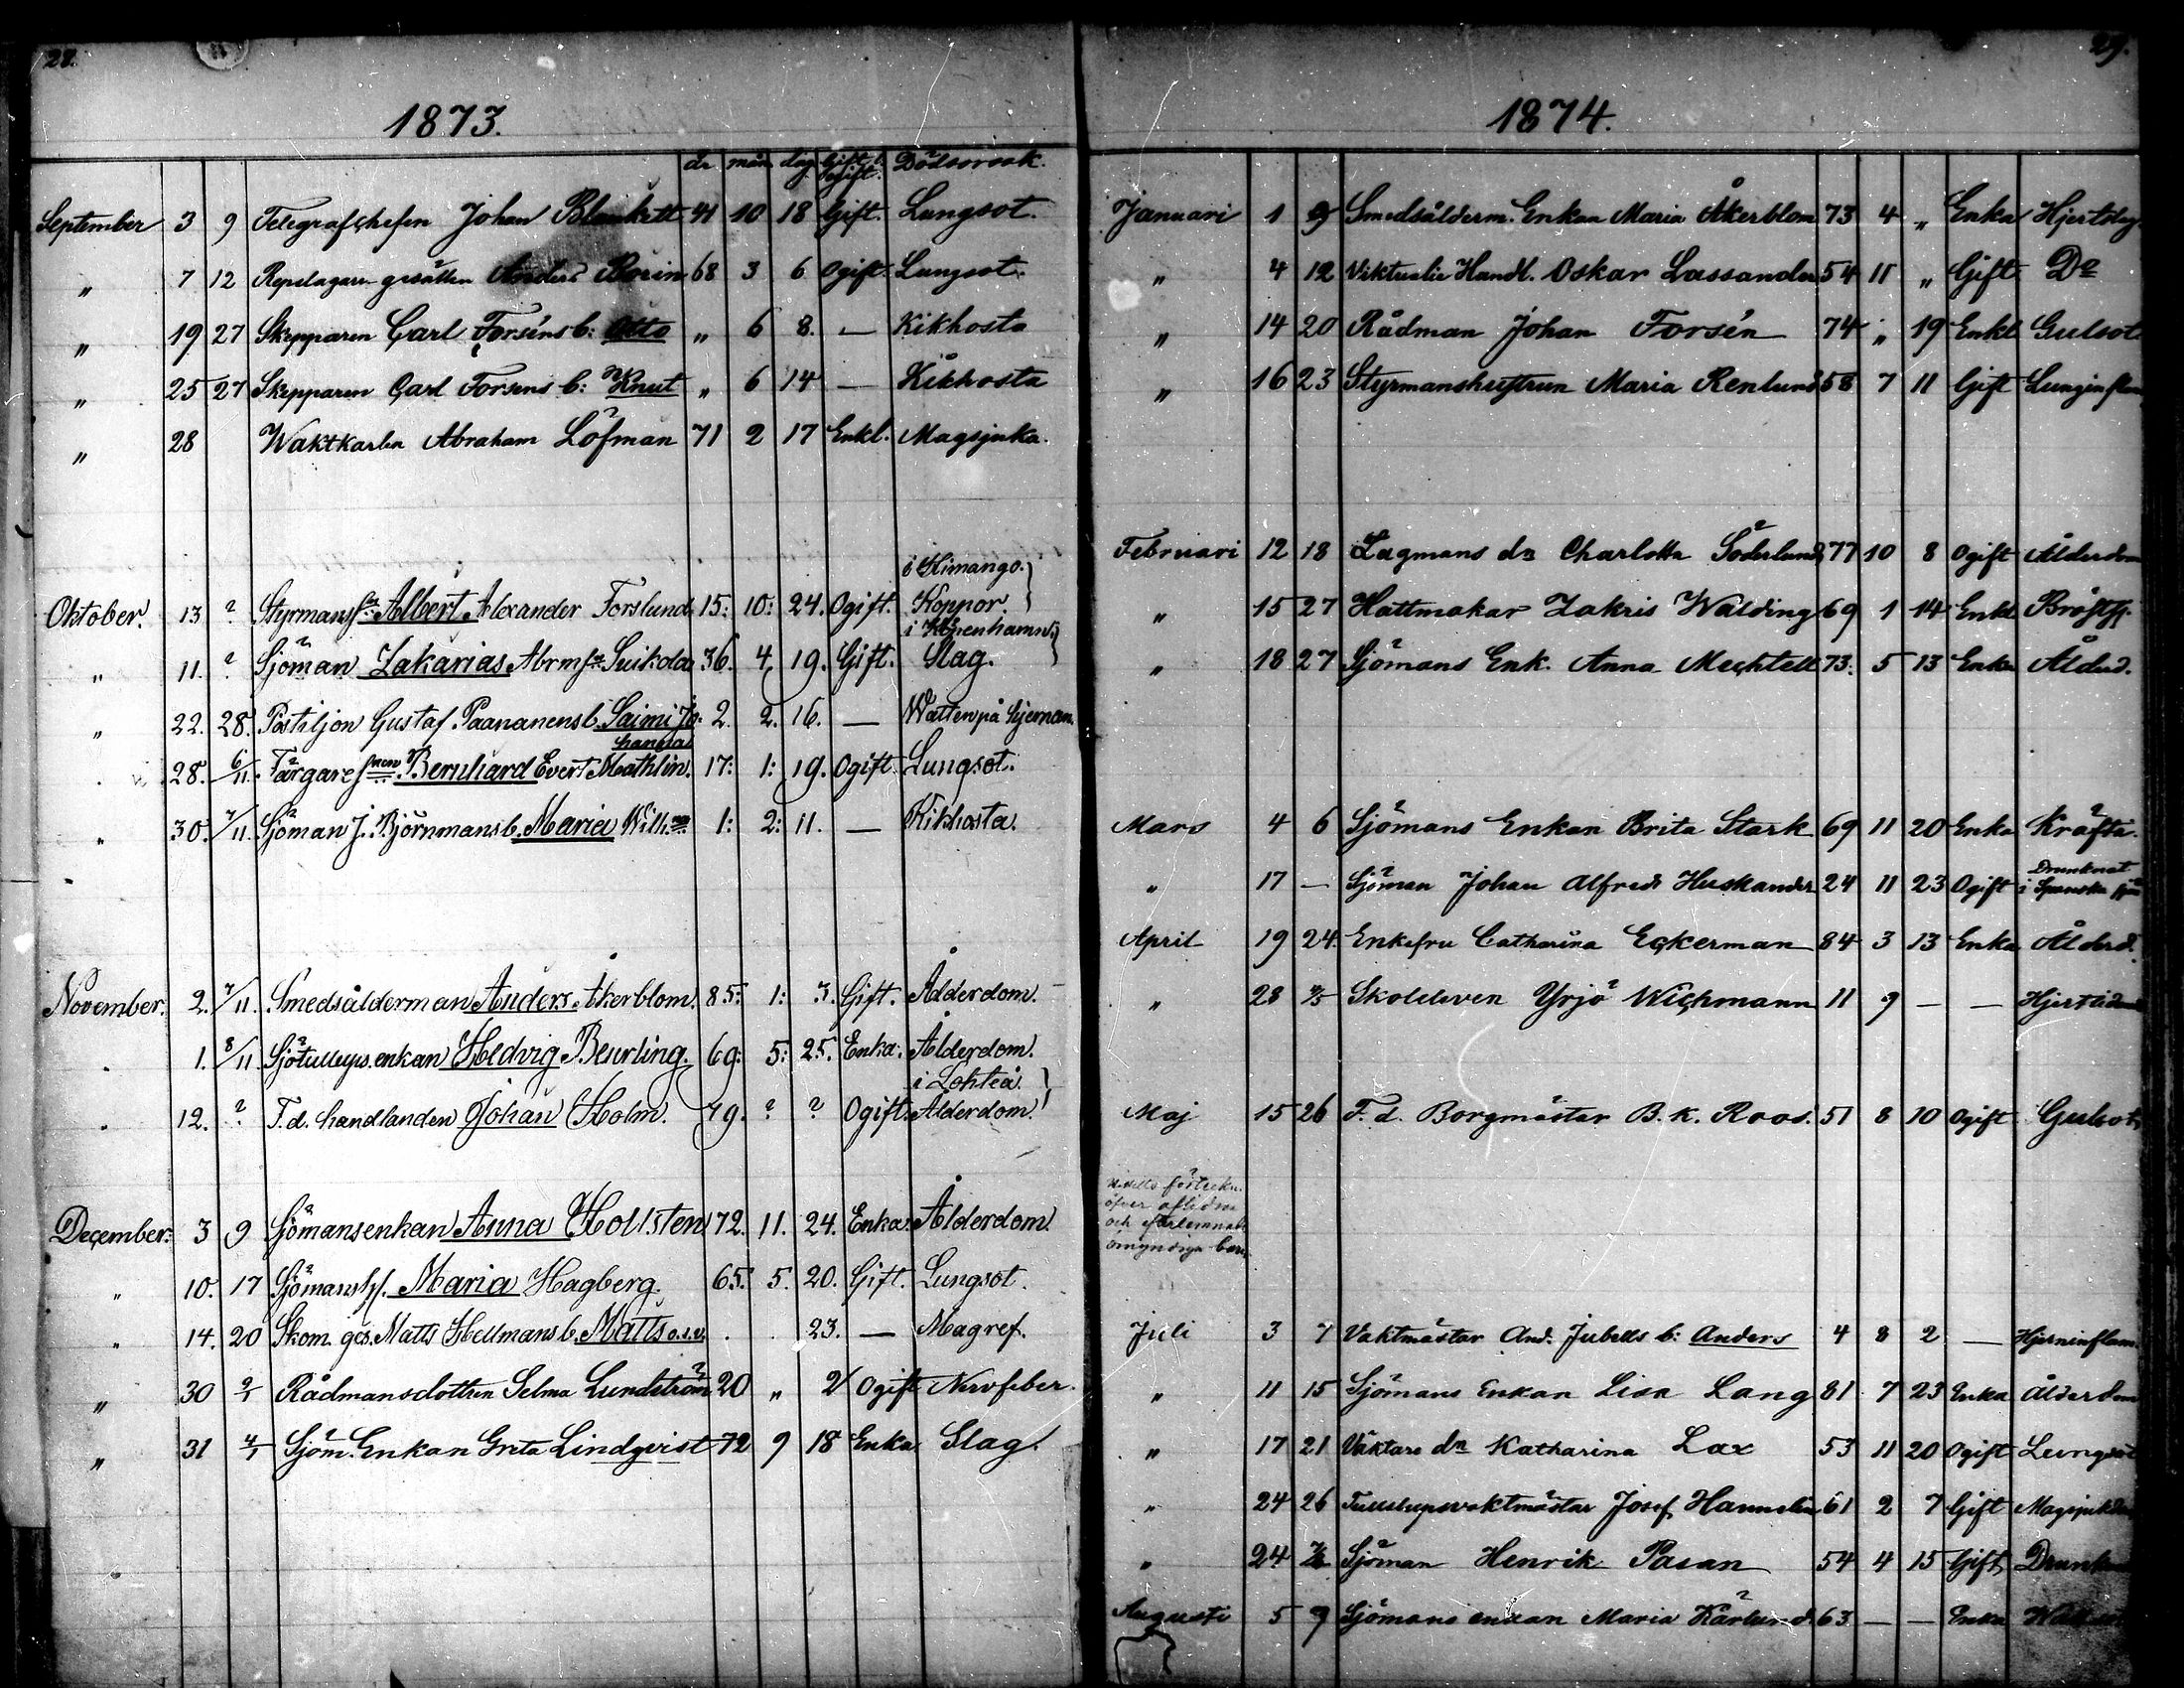 28.
1873.
år mån dag Gift l. ogift. Dödsorsak.
September 3 9 Telegrafchefen Johan Blankett 41 10 18 Gift. Lungsot.
" 7 12 Repslagare gesällen Anders Borin 68 3 6 Ogift. Lungsot.
" 19 27 Skepparen Carl Forséns b: Otto " 6 8. — Kikhosta
" 25 27 Skepparen Carl Forsens b: Knut " 6 14 — Kikhosta
" 28 Waktkarlen Abraham Löfman 71 2 17 Enkl. Magsjuka.
i Himango.
Oktober. 13 ? Styrmans Albert Alexander Forslund 15: 10: 24. Ogift. Koppor.
i Köpenhamn.
" 11. ? Sjöman Zakarias Abrms Suikola 36. 4, 19. Gift. Slag.
" 22. 28. Postiljon Gustaf Paananens b. Saimi Jo- 2. 2. 16. — Watten på hjernan.
hanna
28. 6/11. Färgare Bernhard Evert Mathlin. 17: 1: 19. Ogift. Lungsot.
" 30. 7/11. Sjöman J. Björnmans b. Maria Wilh:na 1: 2: 11. — Kikhosta.
November. 2. 7/11. Smedsålderman Anders Åkerblom. 85: 1: 3. Gift. Ålderdom.
" 1. 8/11 enkan Hedvig Beurling. 69: 5: 25. Enka. Ålderdom.
i Lohteå.
" 12. ? F.d. handlanden Johan Holm. 79. ? ? Ogift. Ålderdom.
December: 3 9 Sjömansenkan Anna Hollsten 72. 11. 24. Enka. Ålderdom.
" 10. 17 Sjömans Maria Hagberg. 65. 5. 20. Gift. Lungsot.
" 14. 20 Skom. ges. Matts Hellmans b. Matts o.s.v. . . 23. — Magref.
" 30 2/1 Rådmansdottren Selma Lundström 20 " 2 Ogift Nervfeber.
" 31 4/1 Sjöm. Enkan Greta Lindqvist 72 9 18 Enka Slag.
29.
1874.
Januari 1 9 Smedsålderm. Enkan Maria Åkerblom 73 4 " Enka Hjertslag
" 4 12 Viktualie Handl. Oskar Lassander 54 11 " Gift Do
" 14 20 Rådman Johan Forsén 74 " 19 Enkl Gulsot
" 16 23 Styrmanshustrun Maria Renlund 58 7 11 Gift Lunginflam
Februari 12 18 Lagmans dn Charlotta Söderlund 77 10 8 Ogift Ålderdom
" 15 27 Hattmakar Zakris Wälding 69 1 14 Enkl
" 18 27 Sjömans Enk. Anna Mechtell 73. 5 13 Enka Ålderd.
Mars 4 6 Sjömans Enkan Brita Stark 69 11 20 Enka Kräfta.
Drunknat
" 17 — Sjöman Johan Alfred Huskander 24 11 23 Ogift i Spanska sjön
April 19 24. Enkefru Catharina Eckerman 84 3 13 Enka Ålderd.
" 28 Skoleleven Yrjö Wichmann 11 9 — — Hjertlidande
Maj 15 26 F. d. Borgmästar B. K. Roos. 51 8 10 Ogift Gulsot
förteckn.
öfver aflidne
och efterlemnade
omyndiga barn.
Juli 3 7 Vaktmästar And: Jubells b: Anders 4 8 2 — Hjerninflam.
" 11 15 Sjömans Enkan Lisa Lang 81 7 23 Enka Ålderdom
" 17 21 Väktare dn Katharina Lax 53 11 20 Ogift Lungsot
" 24 26 Josef Hannelin 61 2 7 Gift Magsjukdom
" 24 Sjöman Henrik Pasan 54 4 15 Gift
Augusti 5 9 Sjömans enkan Maria Kärlund. 63 — — Enka